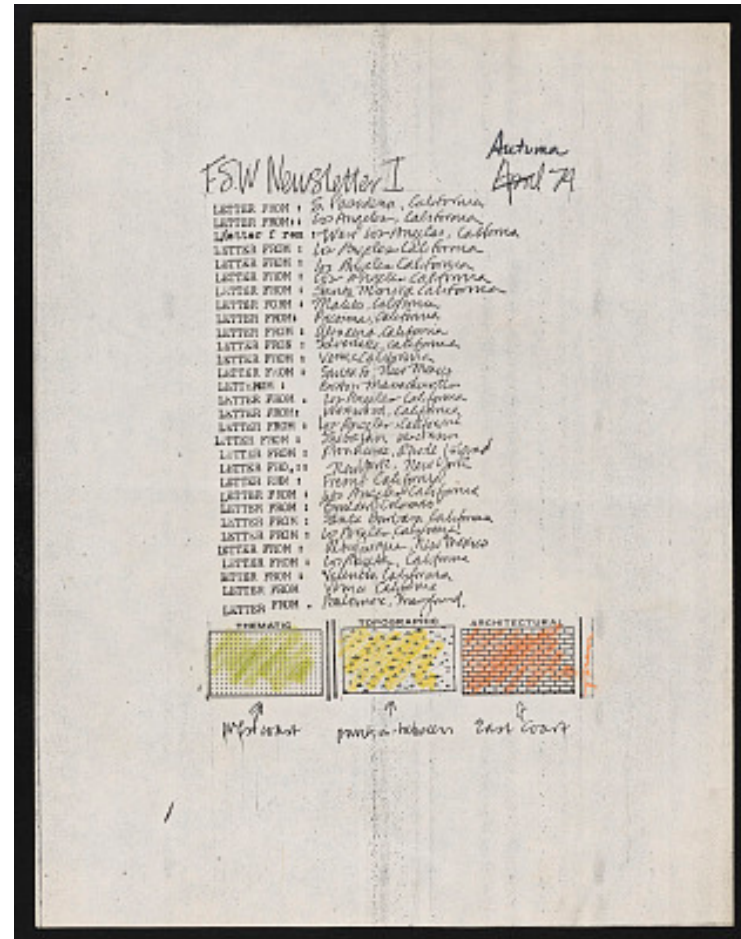 Autumn
FSW Newsletter I April 79
LETTER FROM : So. Pasadena, California
LETTER FROM:: Los Angeles, California
Letter f rom : West Los Angeles, California
LETTER FROM : Los Angeles California
LETTER FROM : Los Angeles California
LETTER FROM : Los Angeles California
LETTER FROM : Santa Monica California
LETTER FORM : Malibu, California
LETTER FROM: Pacoima, California
LETTER FROM : Altadena, California
LETTER FROM : California
LETTER FROM : Venice California
LETTER FROM : Santa Fe, New Mexico
Boston Massachusetts
LETTER FROM : Los Angeles California
LETTER FROM: California
LETTER FROM : Los Angeles California
LETTER FROM : Wisconsin
LETTER FROM : Providence, Rhode Island
LETTER New York, New York
LETTER Fresno California
LETTER FROM : Los Angeles California
LETTER FROM : Boulder, Colorado
LETTER FROM : Santa Barbara California
LETTER FROM : Los Angeles California
LETTER FROM : Albuquerque, New Mexico
LETTER FROM : Los Angeles, California
LETTER FROM : Valencia California
LETTER FROM Venice California
LETTER FROM . Baltimore, Maryland.
THEMATIC TOPOGRAPHIC ARCHITECTURAL
West coast points in-between East Coast